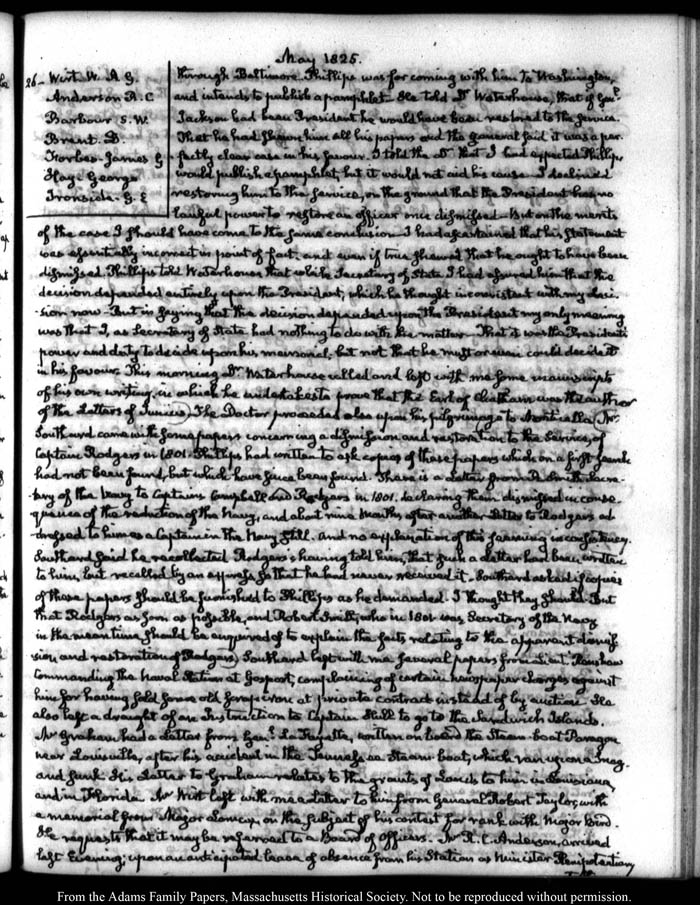 May 1825.
26- Wirt W. A G.
Anderson R. C
Barbour S. W.
Brent. D.
Forbes James G
Hay George
Ironside. G. E
through Baltimore. Phillips was for coming with him to Washington,
and intends to publish a pamphlet. He told Dr Waterhouse, that if Genl
Jackson had been President he would have been restored to the service.
That he had shewn him all his papers and the General said it was a per-
fectly clear case in his favour. I told the Dr that I had expected Phillips
would publish a pamphlet, but it would not aid his cause. I declined
restoring him to the service, on the ground that the President has no
lawful power to restore an officer once dismissed. But on the merits
of the case I should have come to the same conclusion. I had ascertained that his statement
was essentially incorrect in point of fact, and even if true shewed that he ought to have been
dismissed. Phillips told Waterhouse that while Secretary of State I had assured him that the
decision depended entirely upon the President, which he thought inconsistent with my deci-
-sion now. But in saying that the decision depended upon the President my only meaning
was that I, as Secretary of State had nothing to do with the matter. That it was the President's
power and duty to decide upon his memorial, but not that he must or even could decide it
in his favour. This morning Dr Waterhouse called and left with me some manuscripts
of his own writing, in which he undertakes to prove that the Earl of Chatham was the author
of the Letters of Junius. The Doctor proceeded also upon his pilgrimage to Monticello. Mr
Southard came with some papers concerning a dismission and restoration to the Service, of
Captain Rodgers in 1801. Phillips had written to ask copies of these papers which on a first search
had not been found, but which have since been found. There is a Letter from R. Smith Secre-
tary of the Navy to Captains Campbell and Rodgers in 1801. declaring them dismissed in conse-
quence of the reduction of the Navy, and about nine months after another Letter to Rodgers ad-
dressed to him as a Captain in the Navy still. and no explanation of this seeming inconsistency.
Southard said he recollected Rodgers's having told him, that such a letter had been written
to him, but recalled by an express so that he had never received it. Southard asked if copies
of these papers should be furnished to Phillips as he demanded. I thought they should. But
that Rodgers as soon as possible, and Robert Smith, who in 1801 was Secretary of the Navy
in the meantime should be enquired of to explain the facts relating to the apparent dismis-
sion, and restoration of Rodgers. Southard left with me several papers from Lieut. Renshaw
Commanding the Naval Station at Gosport, complaining of certain newspaper charges against
him for having sold some old scrap iron at private contract instead of by auction. He
also left a draught of an Instruction to Captain Hull to go to the Sandwich Islands.
Mr Graham had a Letter from Genl La Fayette, written on board the Steam-boat Paragon
near Louisville, after his accident in the Tennessee Steam boat, which ran upon a snag.
and sunk. His Letter to Graham relates to the grants of Lands to him in Louisiana,
and in Florida. Mr Wirt left with me a Letter to him from General Robert Taylor, with
a memorial from Major on the subject of his contest for rank with Major Bird.
He requests that it may be referred to a Board of officers. Mr R. C. Anderson, arrived
last Evening; upon an anticipated leave of absence from his Station as Minister Plenipotentiary
From the Adams Family Papers, Massachusetts Historical Society. Not to be reproduced without permission.